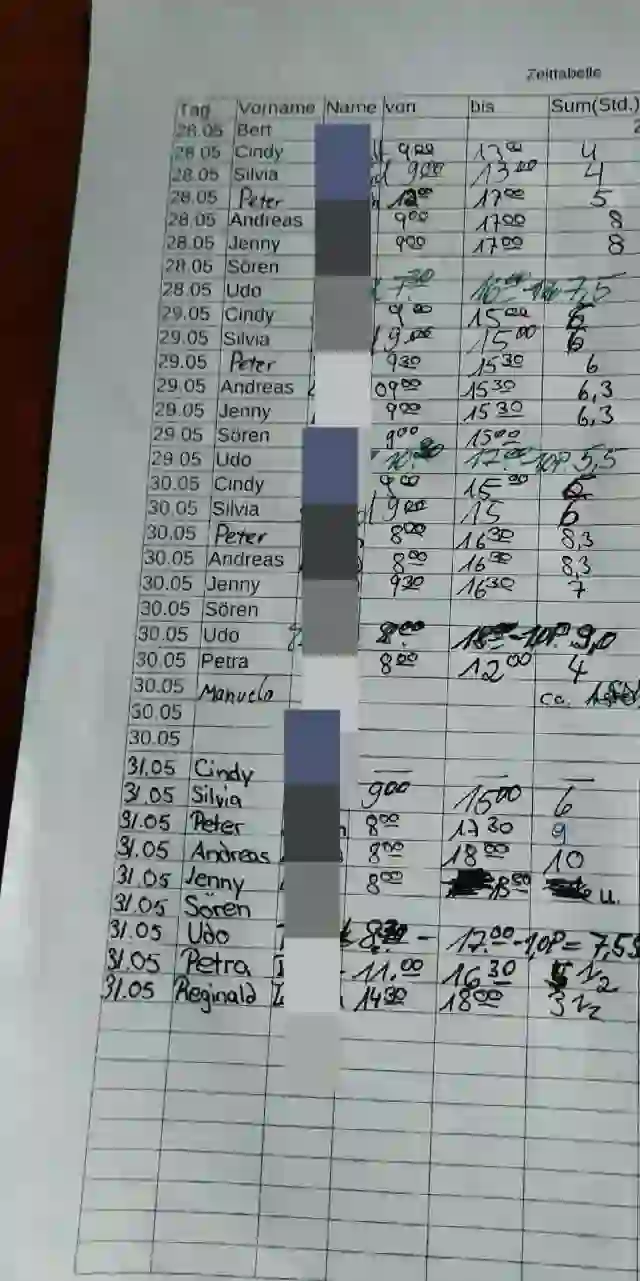 Zeittabelle
Tag Vorname Name von bis Sum(Std.)
28.05 Bert
28.05 Cindy 9 00 13 00 4
28.05 Silvia 9 00 13 00 4
28.05 Peter 12 00 17 00 5
28.05 Andreas 9 00 17 00 8
28.05 Jenny 9 00 17 00 8
28.05 Sören
28.05 Udo 7. 30 7,5
29.05 Cindy 9 00 15 00 6
29.05 Silvia 9.00 15 00 6
29.05 Peter 9 30 15 30 6
29.05 Andreas 09 00 15 30 6,3
29.05 Jenny 9 00 15 30 6,3
29.05 Sören 9 00 15 00
29.05 Udo 17. 00 -1,0P 5,5
30.05 Cindy 9 00 15 00 6
30.05 Silvia 9 00 15 6
30.05 Peter 8 00 16 30 8,3
30.05 Andreas 8 00 16 30 8,3
30.05 Jenny 9 30 16 30 7
30.05 Sören
30.05 Udo 8. 00 -1,0P. 9,0
30.05 Petra 8 00 12 00 4
30.05 Manuela ca.
30.05
30.05
31.05 Cindy — — —
31.05 Silvia 9 00 15 00 6
31.05 Peter 8 00 17 30 9
31.05 Andreas 8 00 18 00 10
31.05 Jenny 8 00 u.
31.05 Sören
31.05 Udo 8. 30 - 17. 00 -1,0P = 7,5
31.05 Petra - 11. 00 16. 30 1/2
31.05 Reginald 14 30 18 00 3 1/2